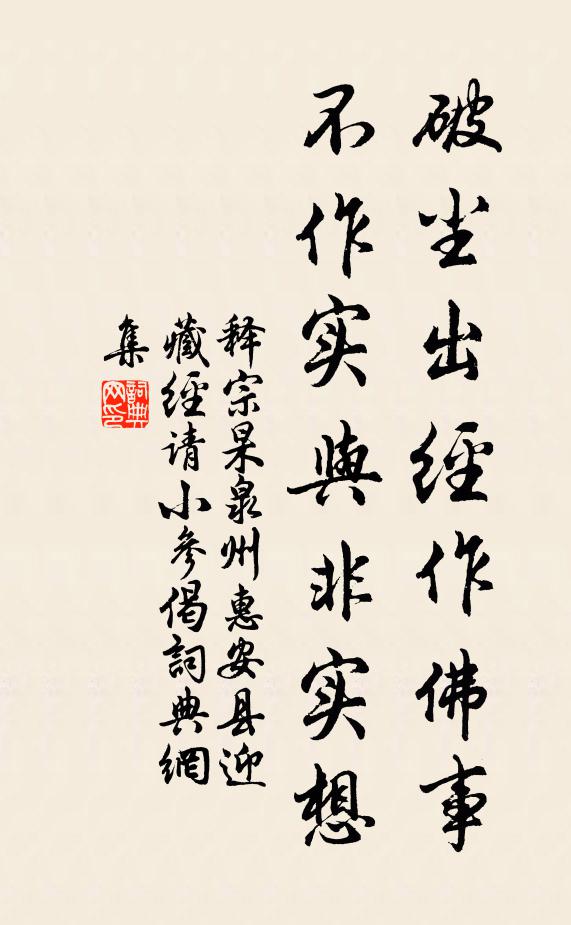 破尘出經作佛事
不作实與非实想
释宗杲泉州惠安县迎
藏經请小參偈詞典網
集
詞典
网印